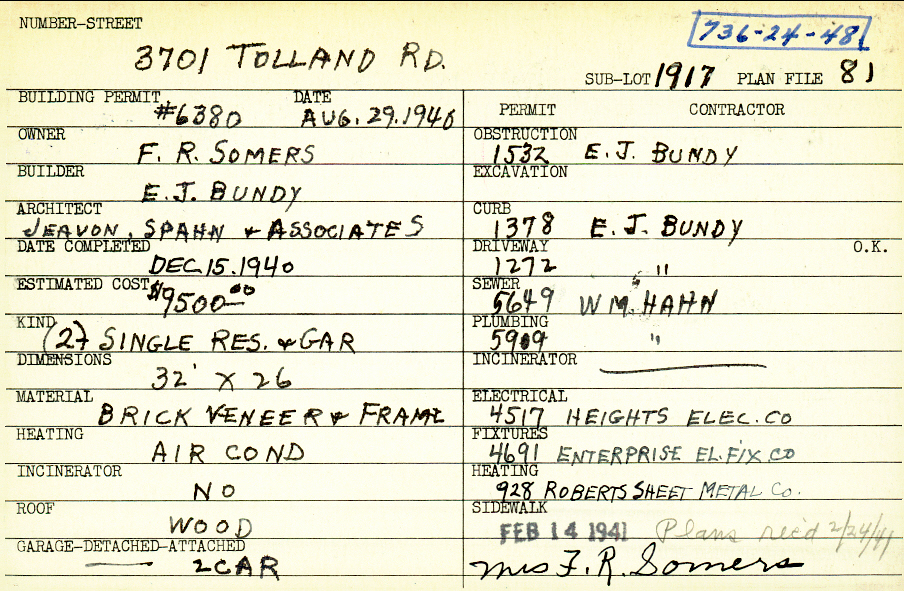 NUMBER-STREET
736-24-48
3701 TOLLAND RD.
SUB-LOT 1917 PLAN FILE 81
BUILDING PERMIT #6380 DATE AUG. 29. 1940
OWNER
F. R. SOMERS
BUILDER
E. J. BUNDY
ARCHITECT
JEAVON, SPAHN & ASSOCIATES
DATE COMPLETED
DEC. 15. 1940
ESTIMATED COST $9500.00
KIND
(2) SINGLE RES. & GAR
DIMENSIONS
32' X 26
MATERIAL
BRICK VENEER & FRAME
HEATING
AIR COND
INCINERATOR
NO
ROOF
WOOD
GARAGE-DETACHED-ATTACHED
2 CAR
PERMIT CONTRACTOR
OBSTRUCTION
1532 E. J. BUNDY
EXCAVATION
CURB
1378 E. J. BUNDY
DRIVEWAY O.K.
1272 "
SEWER
5649 WM. HAHN
PLUMBING
5909 "
INCINERATOR
ELECTRICAL
4517 HEIGHTS ELEC. CO
FIXTURES
4691 ENTERPRISE EL. FIX. CO
HEATING
928 ROBERTS SHEET METAL CO.
SIDEWALK
FEB 14 1941 Plans rec'd 2/24/41
Mrs F. R. Somers